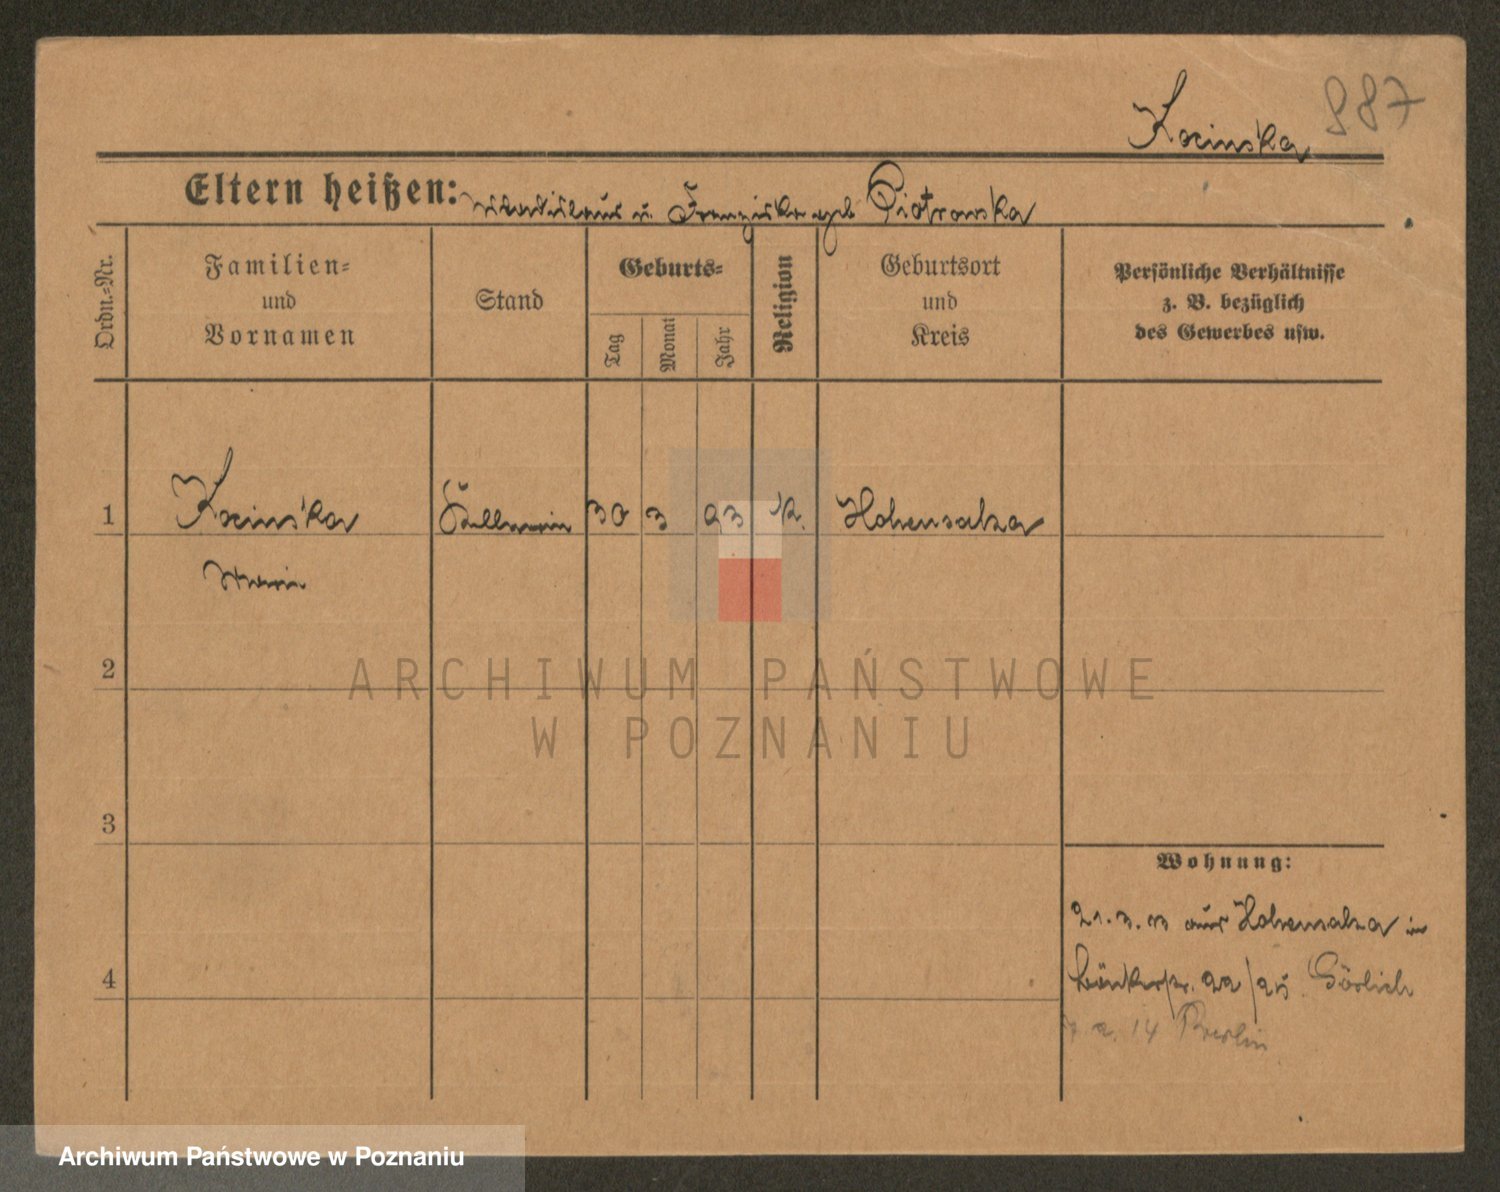 887
Kocinska
Eltern heißen: u. Franziska geb Piotrowska
Ordn.-Nr.
Familien-
und
Vornamen
Stand
Geburts-
Tag
Monat
Jahr
Religion
Geburtsort
und
Kreis
Persönliche Verhältnisse
z. B. bezüglich
des Gewerbes usw.
1 30 3 93 k. Hohensalza
2
3
4
Wohnung:
21.3.13 aus Hohensalza in
22/25 Görlich
7 2. 14 Berlin
ARCHIWUM PAŃSTWOWE
W POZNANIU
Archiwum Państwowe w Poznaniu